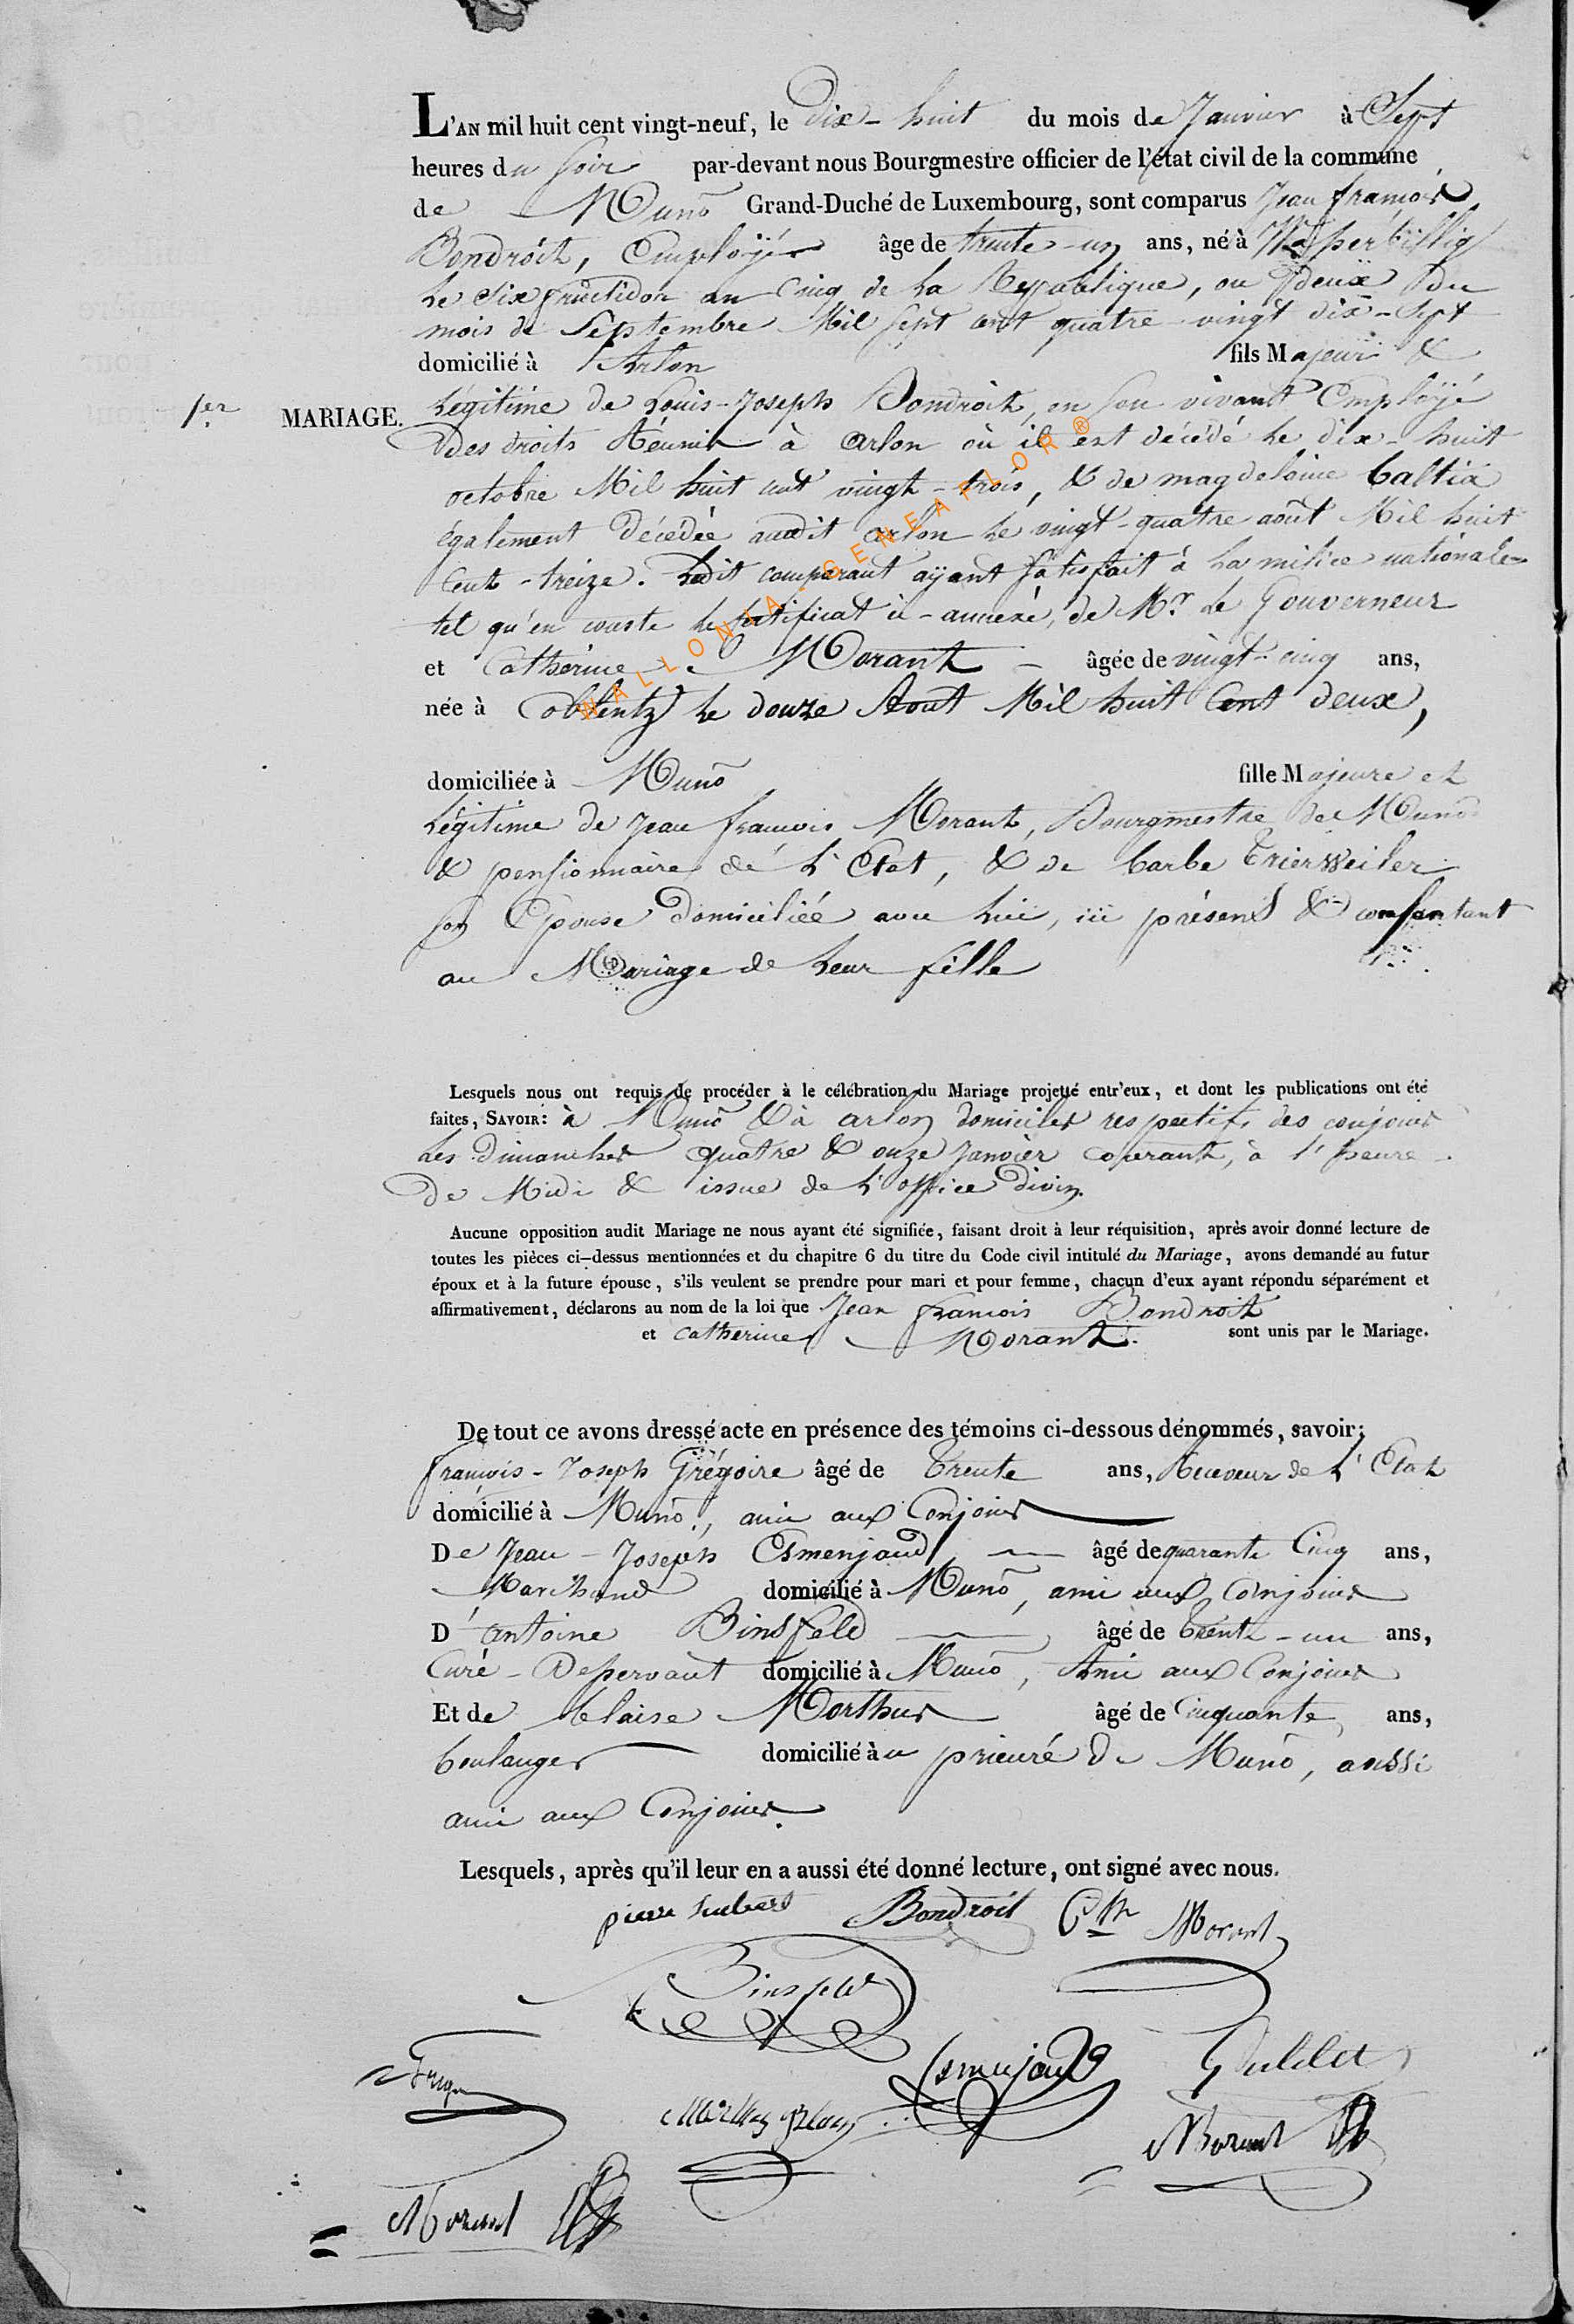 L'AN mil huit cent vingt-neuf, le Dix-huit du mois de Janvier à Sept
heures du soir par-devant nous Bourgmestre officier de l'état civil de la commune
de Muno Grand-Duché de Luxembourg, sont comparus Jean françois
Bondroit, Employé âge de trente-un ans, né à Wasperbillig
le six fructidor an Cinq de la République, ou deux Du
mois de Septembre Mil sept cent quatre-vingt dix-sept
domicilié à Arlon fils Majeur &
1er MARIAGE. Légitime de Louis-Joseph Bondroit, en son vivant Employé
des droits Réunis à arlon où il est décédé le dix-huit
octobre Mil huit cent vingt-trois, & de magdelaine Caltia
également Décédée audit arlon le vingt-quatre août Mil huit
Cent-treize. Ledit comparant aÿant satisfait à la milice nationale
tel qu'en conste le certificat ci-annexé, de Mr. le Gouverneur
et Catherine Morant âgée de vingt-cinq ans,
née à Coblentz le douze Aout Mil huit Cent deux,
domiciliée à Muno fille Majeure et
Légitime de Jean françois Morant, Bourgmestre de Muno
& pensionnaire de l'Etat, & de barbe Trierweiler
son Epouse Domiciliée avec lui, ici présens & consentant
au Mariage de leur fille
Lesquels nous ont requis de procéder à le célébration du Mariage projetté entr'eux, et dont les publications ont été
faites, SAVOIR: à Muno & à arlon domiciles respectifs des conjoins
Les Dimanches quatre & onze Janvier courant, à l'heure
De Midi & issue de l'office Divin.
Aucune opposition audit Mariage ne nous ayant été signifiée, faisant droit à leur réquisition, après avoir donné lecture de
toutes les pièces ci-dessus mentionnées et du chapitre 6 du titre du Code civil intitulé du Mariage, avons demandé au futur
époux et à la future épouse, s'ils veulent se prendre pour mari et pour femme, chacun d'eux ayant répondu séparément et
affirmativement, déclarons au nom de la loi que Jean francois Bondroit
et Catherine Morant. sont unis par le Mariage.
De tout ce avons dressé acte en présence des témoins ci-dessous dénommés, savoir:
françois-Joseph Grégoire âgé de Trente ans, Receveur de l'Etat
domicilié à Muno, ami aux Conjoins
De Jean-Joseph Esmenjaud âgé de quarante Cinq ans,
Marchand domicilié à Muno, ami aux Conjoins
D'antoine Binsfeld âgé de Trente-un ans,
Curé-Desservant domicilié à Muno, Ami aux Conjoins
Et de blaise Morthus âgé de Cinquante ans,
boulanger domicilié au prieuré De Muno, aussi
ami aux Conjoins.
Lesquels, après qu'il leur en a aussi été donné lecture, ont signé avec nous.
pierre hubert Bondroit Cth Morant
Binsfeld
Esmenjaud
Morant
Morant
WALLONIA-GENEAFLOR®